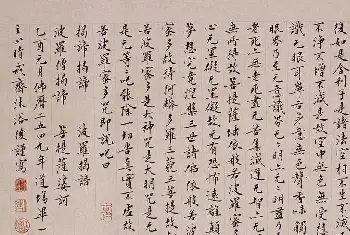 復如是舍利子是諸法空相不生不滅
不淨不增不減是故空中無色無受想
識无眼耳鼻舌身意無色聲香味觸
眼界乃至无意識界无無明亦无無明盡乃
老死亦無老死盡无苦集滅道无智亦无
無所得故菩提薩埵依般若波羅
心无罣礙无罣礙故无有恐怖遠離顛
夢想究竟涅槃三世諸佛依般若波
多故得阿耨多羅三藐三菩提故
若波羅蜜多是大神咒是大明咒是
是无等等咒能除一切苦真實不虛故
若波羅蜜多咒即說咒曰
揭諦揭諦 波羅揭諦
波羅僧揭諦 菩提薩婆訶
乙酉元月佛曆二五四九年道場
主人 戒齋沐浴後謹寫